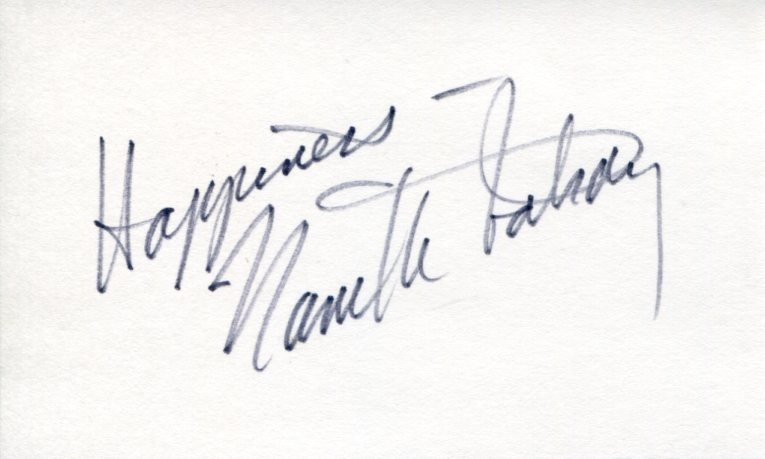 Happiness –
Nanette Fabray